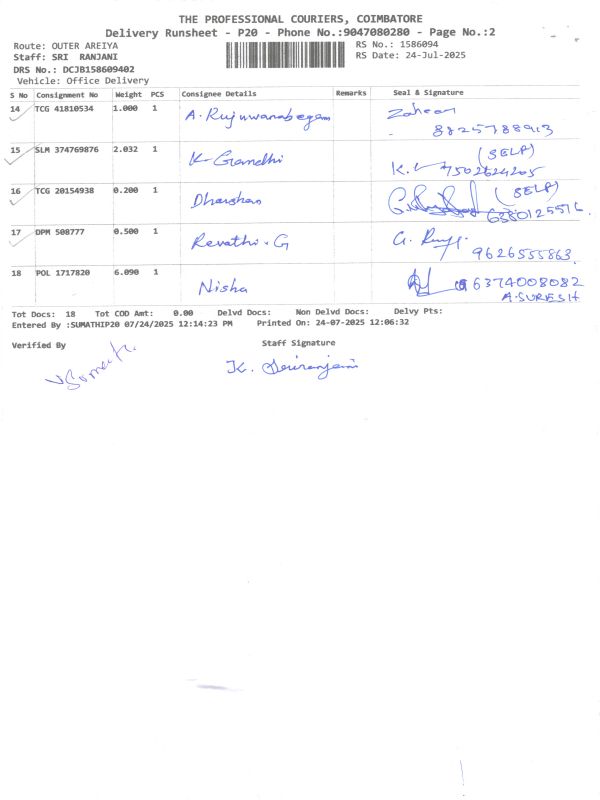 THE PROFESSIONAL COURIERS, COIMBATORE
Delivery Runsheet - P20 - Phone No.:9047080280 - Page No.:2
Route: OUTER AREIYA
RS No.: 1586094
Staff: SRI RANJANI
RS Date: 24-Jul-2025
DRS No.: DCJB158609402
Vehicle: Office Delivery
S No Consignment No Weight PCS Consignee Details Remarks Seal & Signature
14 TCG 41810534 1.000 1 A. Rujuwanabegam Zaheer
8825788913
15 SLM 374769876 2.032 1 K. Gandhi (SELF)
K. 7502624205
16 TCG 20154938 0.200 1 Dharshan (SELF)
6380125516.
17 DPM 508777 0.500 1 Revathi. G G.
9626555863.
18 POL 1717820 6.090 1 Nisha 6374008082
A.SURESH
Tot Docs: 18 Tot COD Amt: 0.00 Delvd Docs: Non Delvd Docs: Delvy Pts:
Entered By :SUMATHIP20 07/24/2025 12:14:23 PM Printed On: 24-07-2025 12:06:32
Verified By Staff Signature
K. Sriranjani